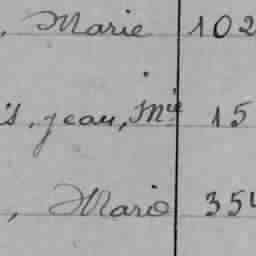 , Marie 102
's, jean, Mie 15
, Mario 354